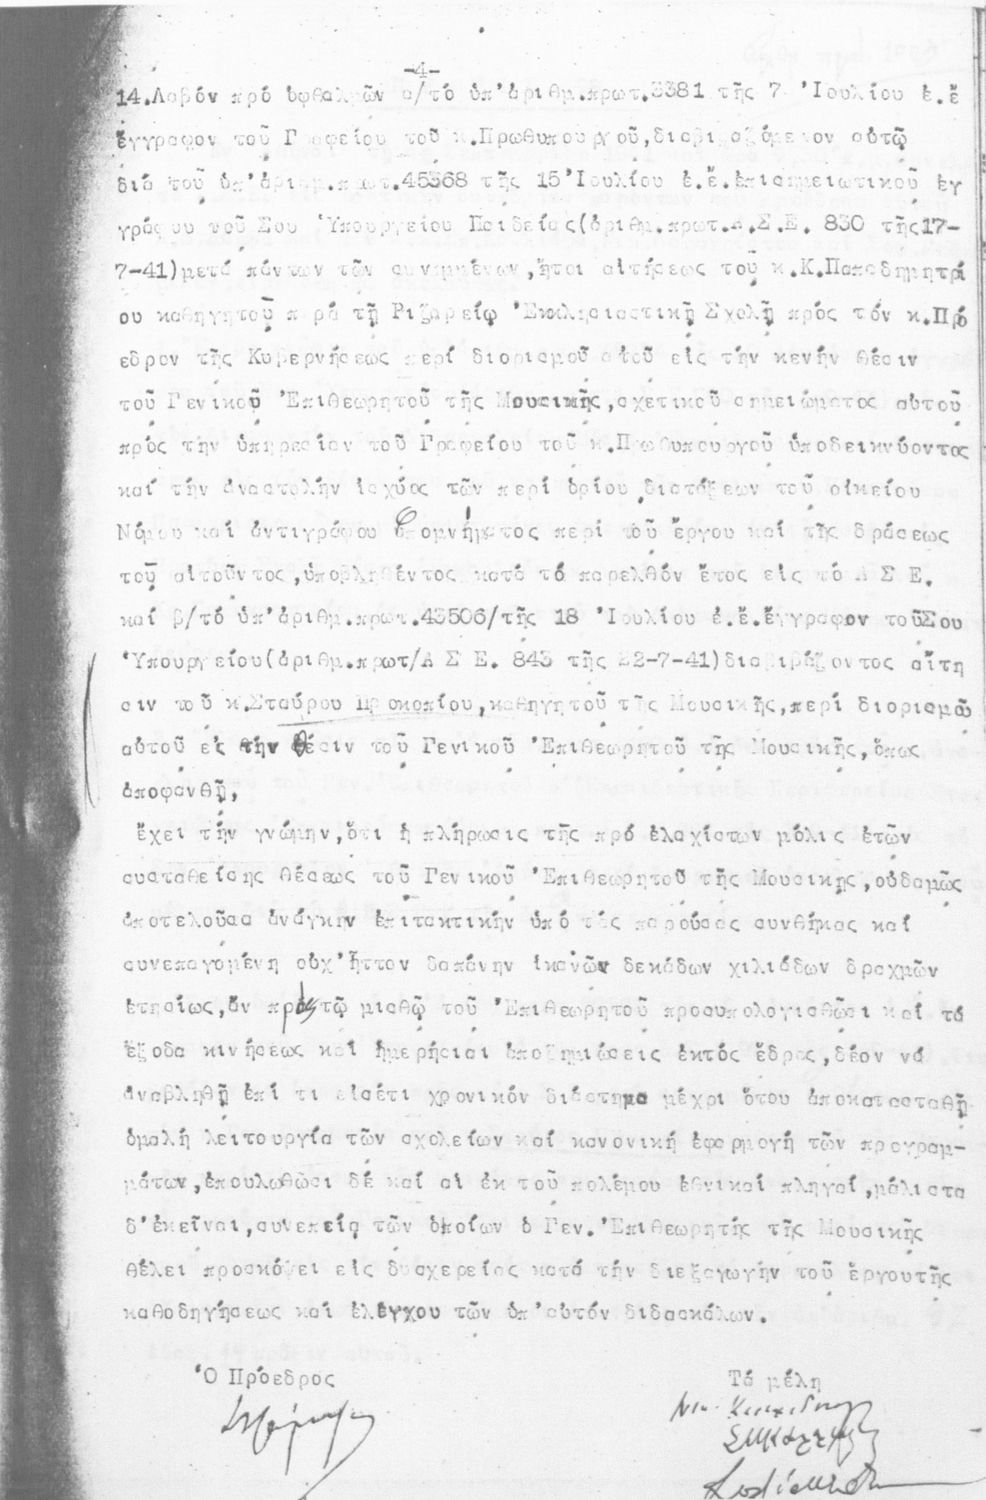 -4-
14.Λαβόν πρό ὀφθαλμῶν α/τό ὑπ'ἀριθμ.πρωτ.3381 τῆς 7 Ἰουλίου ἐ.ἔ
ἔγγραφον τοῦ Γραφείου τοῦ κ.Πρωθυπουργοῦ,διαβιβαζόμενον αὐτῷ
διά τοῦ ὑπ'ἀριθμ.πρωτ.45368 τῆς 15 Ἰουλίου ἐ.ἔ.ἐπισημειωτικοῦ ἐγ
γράφου τοῦ Σου Ὑπουργείου Παιδείας(ἀριθμ.πρωτ.Α.Σ.Ε. 830 τῆς17-
7-41)μετά πάντων τῶν συνημμένων,ἤτοι αἰτήσεως τοῦ κ.Κ.Παπαδημητρί
ου καθηγητοῦ παρά τῇ Ριζαρείῳ Ἐκκλησιαστικῇ Σχολῇ πρός τόν κ.Πρό
εδρον τῆς Κυβερνήσεως περί διορισμοῦ αὐτοῦ εἰς τήν κενήν θέσιν
τοῦ Γενικοῦ Ἐπιθεωρητοῦ τῆς Μουσικῆς,σχετικοῦ σημειώματος αὐτοῦ
πρός τήν ὑπηρεσίαν τοῦ Γραφείου τοῦ κ.Πρωθυπουργοῦ ὑποδεικνύοντος
καί τήν ἀναστολήν ἰσχύος τῶν περί ὁρίου διατάξεων τοῦ οἰκείου
Νόμου καί ἀντιγράφου ὑπομνήματος περί τοῦ ἔργου καί τῆς δράσεως
τοῦ αἰτοῦντος,ὑποβληθέντος κατά τό παρελθόν ἔτος εἰς τό Α Σ Ε.
καί β/τό ὑπ'ἀριθμ.πρωτ.43506/τῆς 18 Ἰουλίου ἐ.ἔ.ἔγγραφον τοῦΣου
Ὑπουργείου(ἀριθμ.πρωτ/Α Σ Ε. 843 τῆς 22-7-41)διαβιβάζοντος αἴτη
σιν τοῦ κ.Σταύρου Προκοπίου,καθηγητοῦ τῆς Μουσικῆς,περί διορισμοῦ
αὐτοῦ εἰς τήν θέσιν τοῦ Γενικοῦ Ἐπιθεωρητοῦ τῆς Μουσικῆς,ὅπως
ἀποφανθῇ,
ἔχει τήν γνώμην,ὅτι ἡ πλήρωσις τῆς πρό ἐλαχίστων μόλις ἐτῶν
συσταθείσης θέσεως τοῦ Γενικοῦ Ἐπιθεωρητοῦ τῆς Μουσικης,οὐδαμῶς
ἀποτελοῦσα ἀνάγκην ἐπιτακτικήν ὑπό τάς παρούσας συνθήκας καί
συνεπαγομένη οὐχ'ἧττον δαπάνην ἱκανῶν δεκάδων χιλιάδων δραχμῶν
ἐτησίως,ἄν πρός τῷ μισθῷ τοῦ Ἐπιθεωρητοῦ προϋπολογισθῶσι καί τά
ἔξοδα κινήσεως καί ἡμερήσιαι ἀποζημιώσεις ἐκτός ἕδρας,δέον νά
ἀναβληθῇ ἐπί τι εἰσέτι χρονικόν διάστημα μέχρι ὅτου ἀποκατασταθῇ
ὁμαλή λειτουργία τῶν σχολείων καί κανονική ἐφαρμογή τῶν προγραμ-
μάτων,ἐπουλωθῶσι δέ καί αἱ ἐκ τοῦ πολέμου ἐθνικαί πληγαί,μάλιστα
δ'ἐκεῖναι,συνεπείᾳ τῶν ὁποίων ὁ Γεν.Ἐπιθεωρητής τῆς Μουσικῆς
θέλει προσκόψει εἰς δυσχερείας κατά τήν διεξαγωγήν τοῦ ἔργουτῆς
καθοδηγήσεως καί ἐλέγχου τῶν ὑπ'αὐτόν διδασκάλων.
Ὁ Πρόεδρος
Τά μέλη